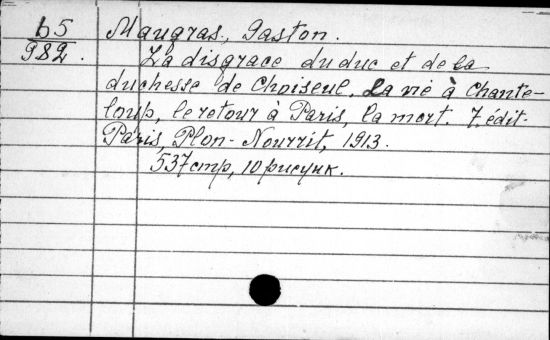 b5
982.
Maugras, Gaston.
La disgrace du duc et de la
duchesse de Choiseul. La vie à Chante-
loup, le retour à Paris, la mort. 7. édit.
Paris, Plon-Nourrit, 1913.
537 стр, 10 рисунк.